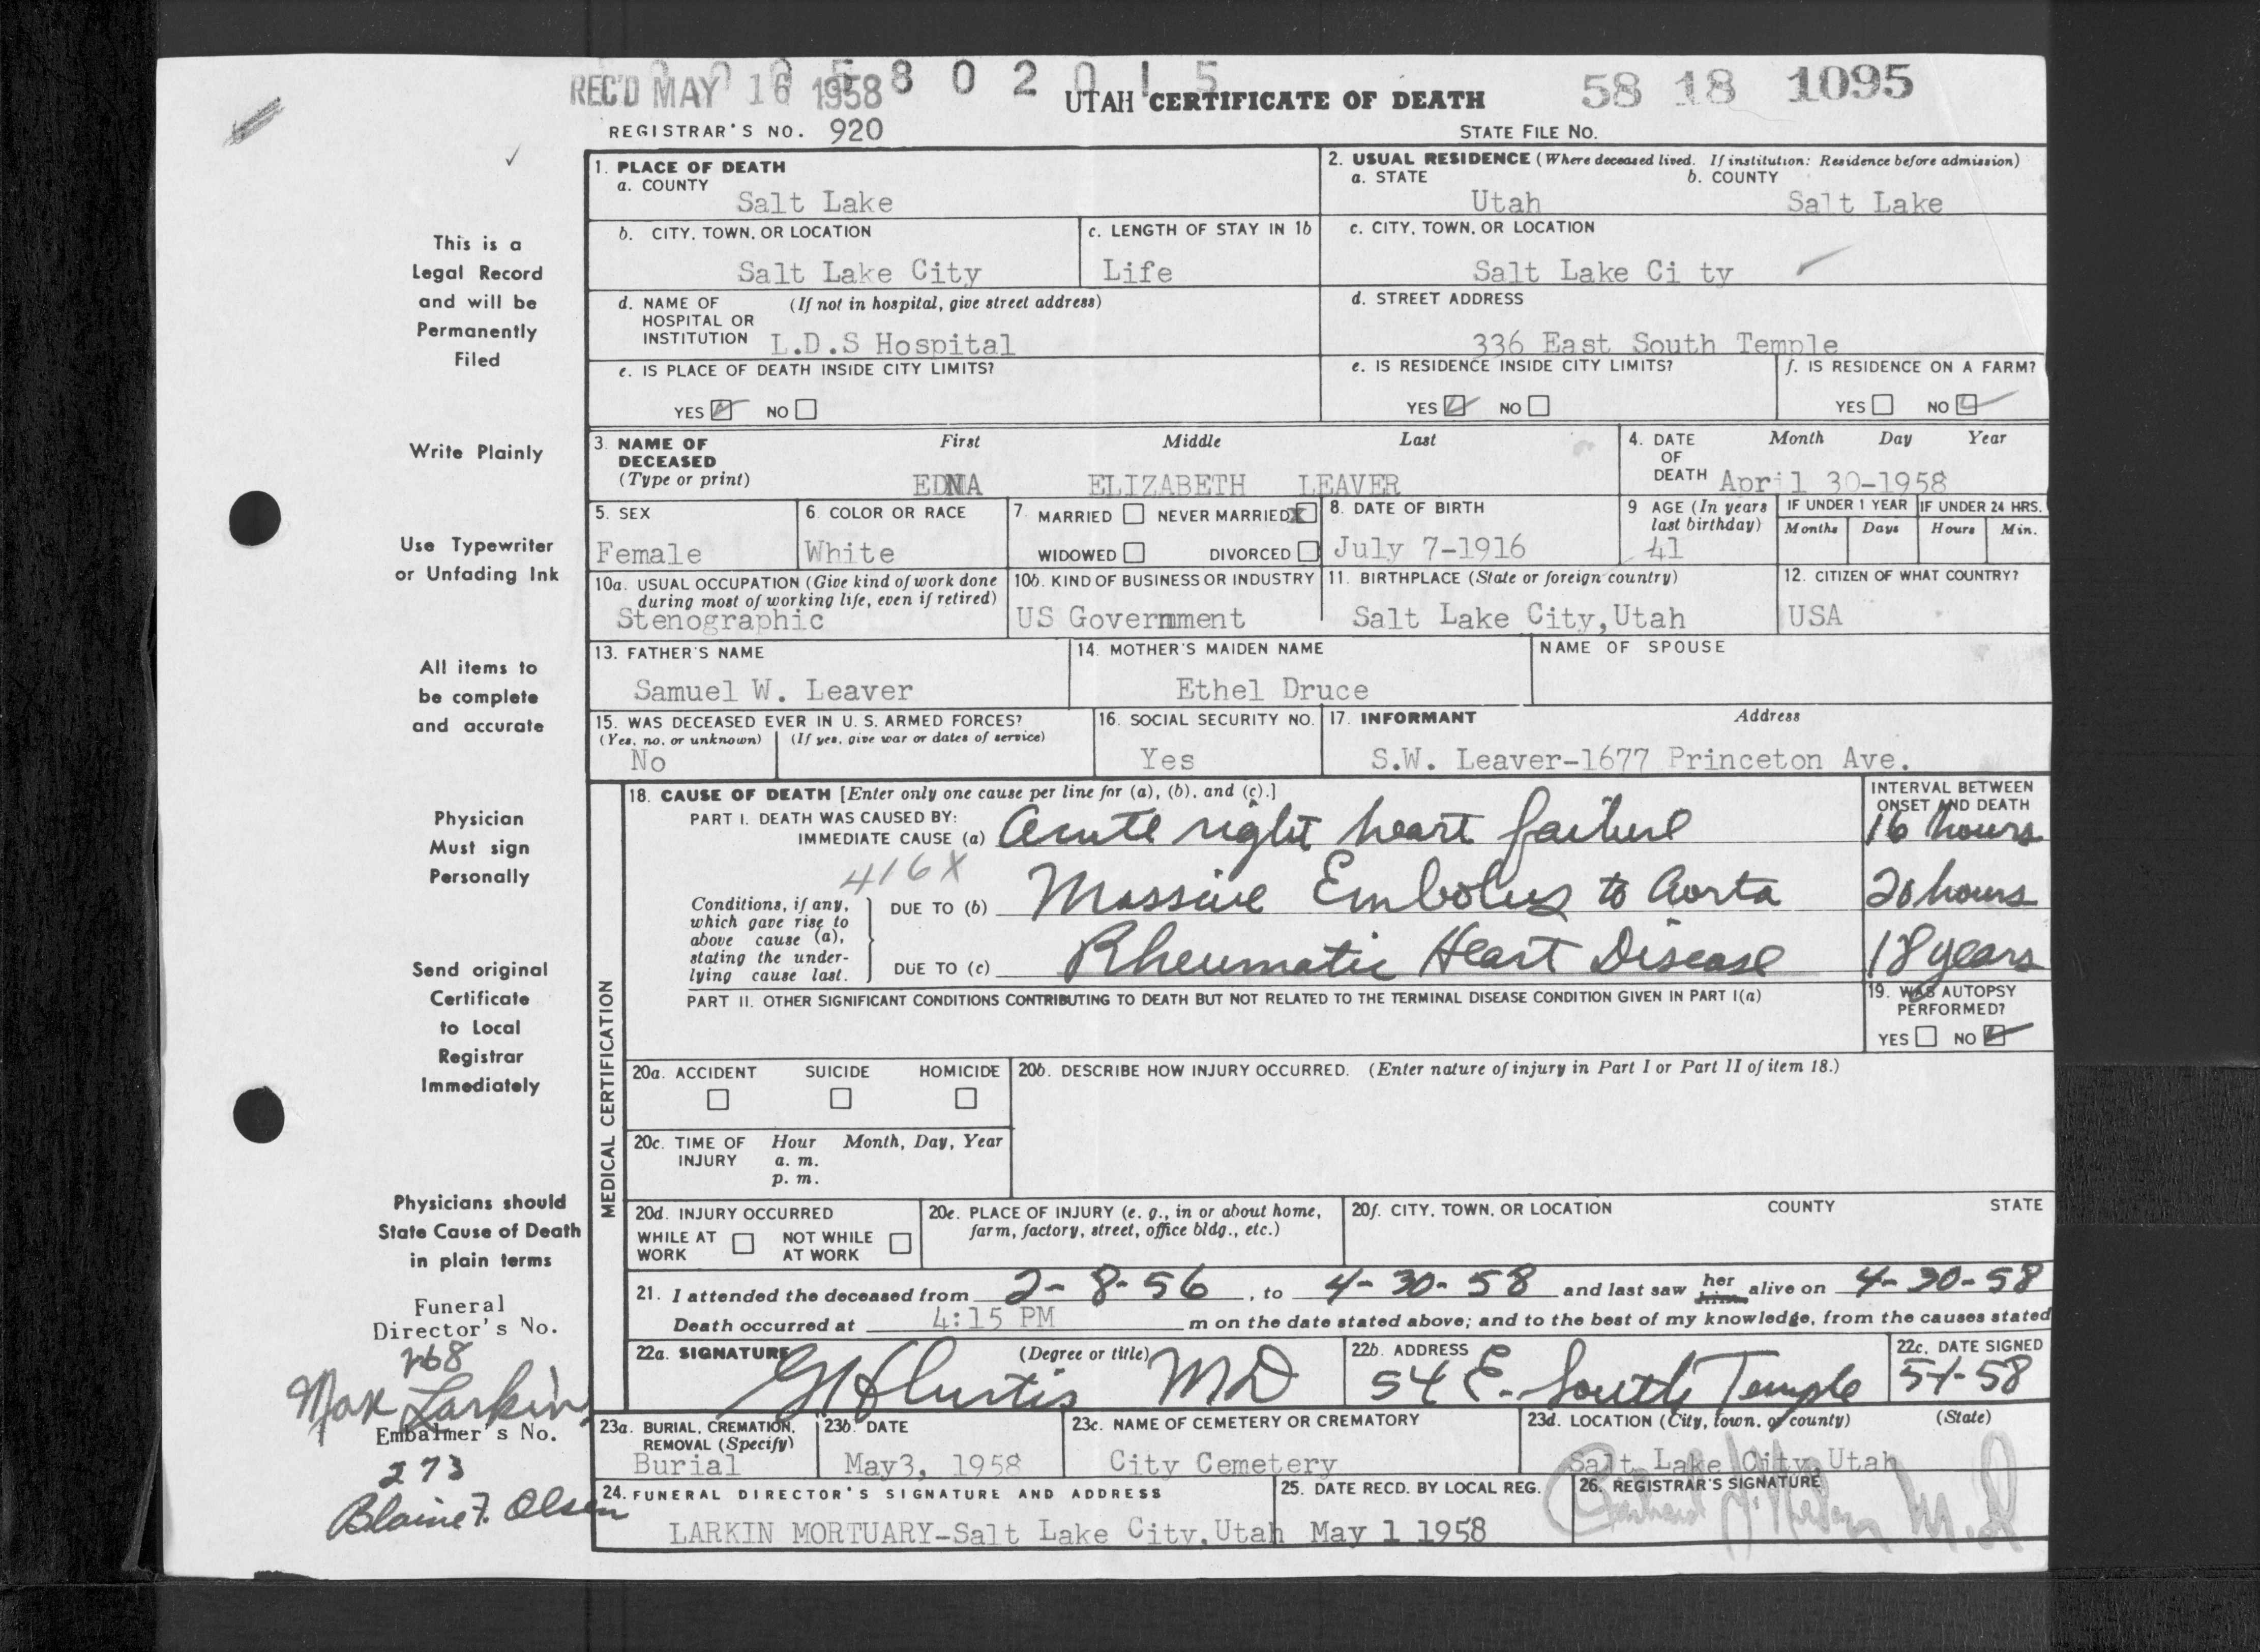 REC'D MAY 16 1958 8 0 2 0 1 5
UTAH CERTIFICATE OF DEATH
58 18 1095
REGISTRAR'S NO. 920
STATE FILE NO.
This is a
Legal Record
and will be
Permanently
Filed
Write Plainly
Use Typewriter
or Unfading Ink
All items to
be complete
and accurate
Physician
Must sign
Personally
Send original
Certificate
to Local
Registrar
Immediately
Physicians should
State Cause of Death
in plain terms
Funeral
Director's No.
268
Max Larkin
Embalmer's No.
273
Blaine F. Olsen
1. PLACE OF DEATH
a. COUNTY
Salt Lake
2. USUAL RESIDENCE (Where deceased lived. If institution: Residence before admission)
a. STATE b. COUNTY
Utah Salt Lake
b. CITY, TOWN, OR LOCATION
Salt Lake City
c. LENGTH OF STAY IN 1b
Life
c. CITY, TOWN, OR LOCATION
Salt Lake Ci ty
d. NAME OF (If not in hospital, give street address)
HOSPITAL OR
INSTITUTION L.D.S Hospital
d. STREET ADDRESS
336 East South Temple
e. IS PLACE OF DEATH INSIDE CITY LIMITS?
YES NO
e. IS RESIDENCE INSIDE CITY LIMITS?
YES NO
f. IS RESIDENCE ON A FARM?
YES NO
3. NAME OF First Middle Last
DECEASED
(Type or print) EDNA ELIZABETH LEAVER
4. DATE Month Day Year
OF
DEATH April 30-1958
5. SEX
Female
6. COLOR OR RACE
White
7. MARRIED NEVER MARRIED X
WIDOWED DIVORCED
8. DATE OF BIRTH
July 7-1916
9 AGE (In years
last birthday)
41
IF UNDER 1 YEAR
Months Days
IF UNDER 24 HRS.
Hours Min.
10a. USUAL OCCUPATION (Give kind of work done
during most of working life, even if retired)
Stenographic
10b. KIND OF BUSINESS OR INDUSTRY
US Governmment
11. BIRTHPLACE (State or foreign country)
Salt Lake City,Utah
12. CITIZEN OF WHAT COUNTRY?
USA
13. FATHER'S NAME
Samuel W. Leaver
14. MOTHER'S MAIDEN NAME
Ethel Druce
NAME OF SPOUSE
15. WAS DECEASED EVER IN U. S. ARMED FORCES?
(Yes, no, or unknown) (If yes, give war or dates of service)
No
16. SOCIAL SECURITY NO.
Yes
17. INFORMANT Address
S.W. Leaver-1677 Princeton Ave.
MEDICAL CERTIFICATION
18. CAUSE OF DEATH [Enter only one cause per line for (a), (b), and (c).]
PART I. DEATH WAS CAUSED BY:
IMMEDIATE CAUSE (a) Acute right heart failure
INTERVAL BETWEEN
ONSET AND DEATH
16 hours
416X
Conditions, if any,
which gave rise to
above cause (a),
stating the under-
lying cause last.
DUE TO (b) Massive Embolus to Aorta
20 hours
DUE TO (c) Rheumatic Heart Disease
18 years
PART II. OTHER SIGNIFICANT CONDITIONS CONTRIBUTING TO DEATH BUT NOT RELATED TO THE TERMINAL DISEASE CONDITION GIVEN IN PART I(a)
19. WAS AUTOPSY
PERFORMED?
YES NO
20a. ACCIDENT SUICIDE HOMICIDE
20b. DESCRIBE HOW INJURY OCCURRED. (Enter nature of injury in Part I or Part II of item 18.)
20c. TIME OF Hour Month, Day, Year
INJURY a. m.
p. m.
20d. INJURY OCCURRED
WHILE AT NOT WHILE
WORK AT WORK
20e. PLACE OF INJURY (e. g., in or about home,
farm, factory, street, office bldg., etc.)
20f. CITY, TOWN, OR LOCATION COUNTY STATE
21. I attended the deceased from 2-8-56, to 4-30-58 and last saw her him alive on 4-30-58
Death occurred at 4:15 PM m on the date stated above; and to the best of my knowledge, from the causes stated
22a. SIGNATURE (Degree or title)
Curtis MD
22b. ADDRESS
54 E. South Temple
22c. DATE SIGNED
5-1-58
23a. BURIAL, CREMATION,
REMOVAL (Specify)
Burial
23b. DATE
May3, 1958
23c. NAME OF CEMETERY OR CREMATORY
City Cemetery
23d. LOCATION (City, town, or county) (State)
Salt Lake City, Utah
24. FUNERAL DIRECTOR'S SIGNATURE AND ADDRESS
LARKIN MORTUARY-Salt Lake City,Utah
25. DATE RECD. BY LOCAL REG.
May 1 1958
26. REGISTRAR'S SIGNATURE
M.D.